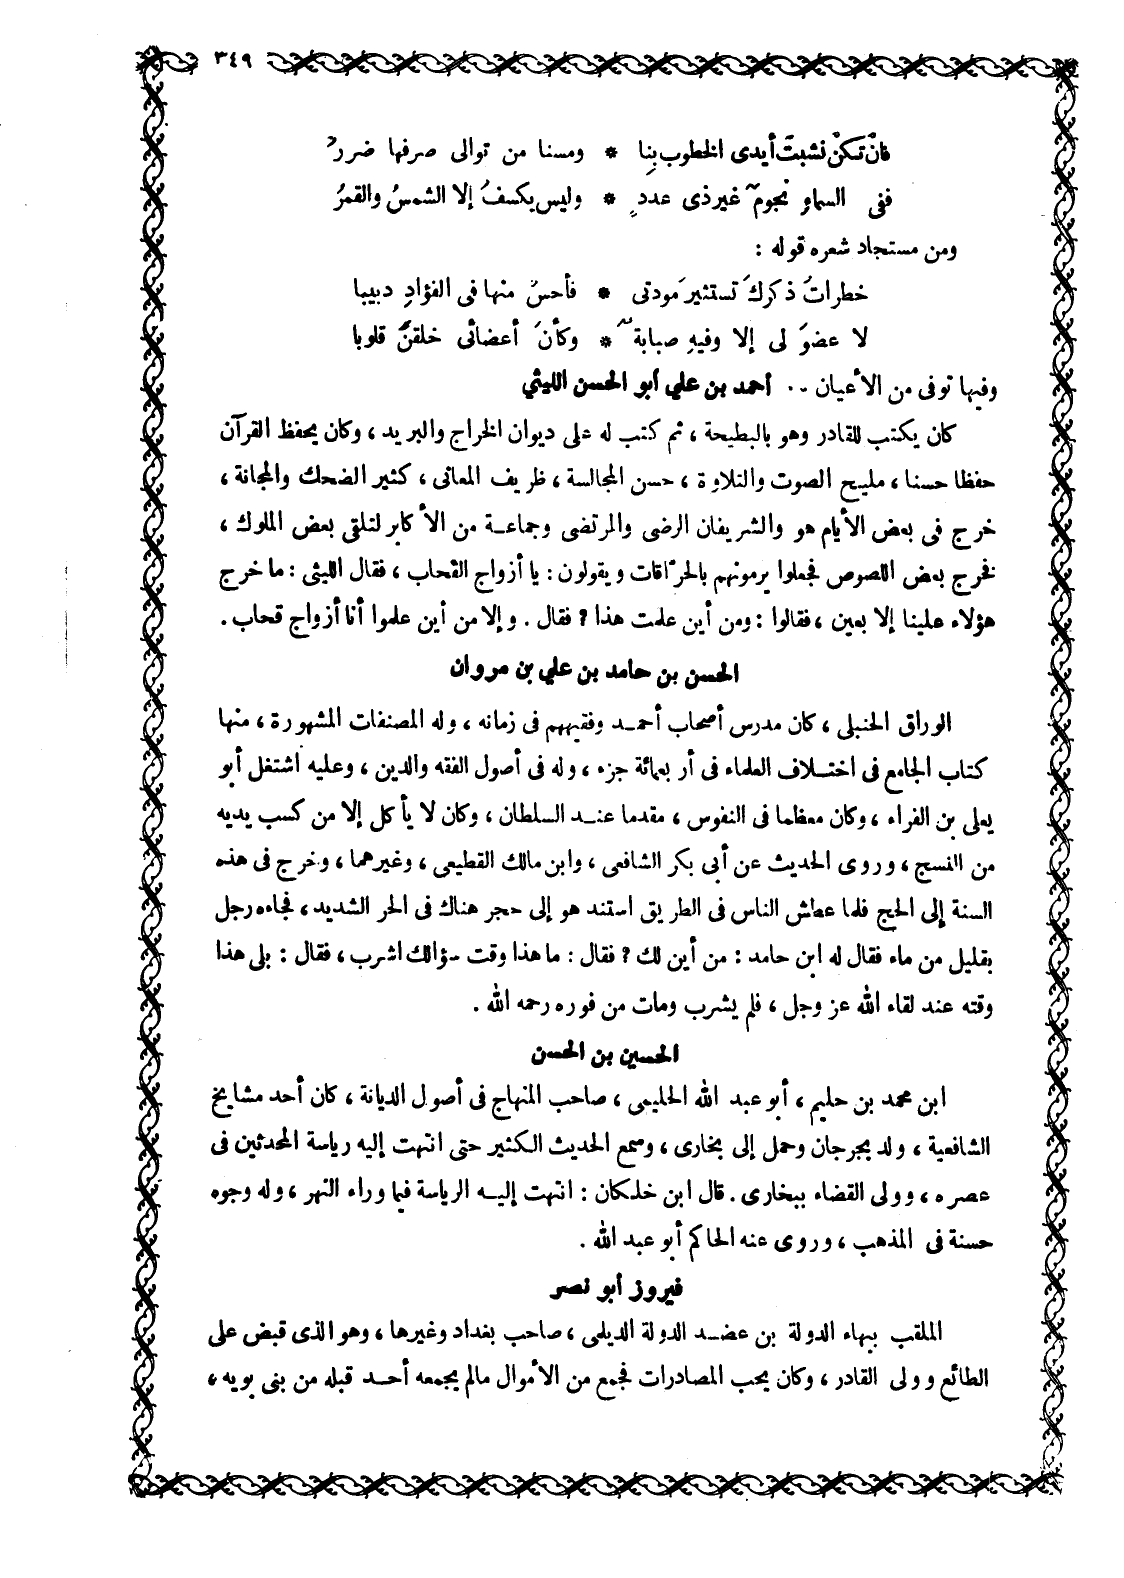 ٣٤٩
فانْ تكنْ نشبتَ أيدى الخطوب بِنا * ومسنا من توالى صرفها ضررُ
ففى السماءِ نجومٌ غير ذى عددٍ * وليس يكسفُ إلا الشمسُ والقمرُ
ومن مستجاد شعره قوله :
خطراتُ ذكركَ تستثيرَ مودتى * فأحسُ منها فى الفؤادِ دبيبا
لا عضوَ لى إلا وفيهِ صبابةٌ * وكأنَ أعضائى خلقنَّ قلوبا
وفيها توفى من الأعيان .. أحمد بن علي أبو الحسن الليثي
كان يكتب للقادر وهو بالبطيحة ، ثم كتب له على ديوان الخراج والبريد ، وكان يحفظ القرآن
حفظا حسنا ، مليح الصوت والتلاوة ، حسن المجالسة ، ظريف المعانى ، كثير الضحك والمجانة ،
خرج فى بعض الأيام هو والشريفان الرضى والمرتضى وجماعة من الأكابر لتلقى بعض الملوك ،
فخرج بعض اللصوص فجعلوا يرمونهم بالحرّاقات ويقولون : يا أزواج القحاب ، فقال الليثى : ما خرج
هؤلاء علينا إلا بعين ، فقالوا : ومن أين علمت هذا ? فقال . وإلا من أين علموا أنا أزواج قحاب .
الحسن بن حامد بن علي بن مروان
الوراق الحنبلى ، كان مدرس أصحاب أحمد وفقيههم فى زمانه ، وله المصنفات المشهورة ، منها
كتاب الجامع فى اختلاف العلماء فى أربعمائة جزء ، وله فى أصول الفقه والدين ، وعليه اشتغل أبو
يعلى بن الفراء ، وكان معظما فى النفوس ، مقدما عند السلطان ، وكان لا يأكل إلا من كسب يديه
من النسج ، وروى الحديث عن أبى بكر الشافعى ، وابن مالك القطيعى ، وغيرهما ، وخرج فى هذه
السنة إلى الحج فلما عطش الناس فى الطريق استند هو إلى حجر هناك فى الحر الشديد ، فجاءه رجل
بقليل من ماء فقال له ابن حامد : من أين لك ? فقال : ما هذا وقت سؤالك اشرب ، فقال : بلى هذا
وقته عند لقاء الله عز وجل ، فلم يشرب ومات من فوره رحمه الله .
الحسين بن الحسن
ابن محمد بن حليم ، أبو عبد الله الحليمى ، صاحب المنهاج فى أصول الديانة ، كان أحد مشايخ
الشافعية ، ولد بجرجان وحمل إلى بخارى ، وسمع الحديث الكثير حتى انتهت إليه رياسة المحدثين فى
عصره ، وولى القضاء ببخارى . قال ابن خلكان : انتهت إليه الرياسة فيما وراء النهر ، وله وجوه
حسنة فى المذهب ، وروى عنه الحاكم أبو عبد الله .
فيروز أبو نصر
الملقب ببهاء الدولة بن عضد الدولة الديلمى ، صاحب بغداد وغيرها ، وهو الذى قبض على
الطائع وولى القادر ، وكان يحب المصادرات فجمع من الأموال مالم يجمعه أحد قبله من بنى بويه ،